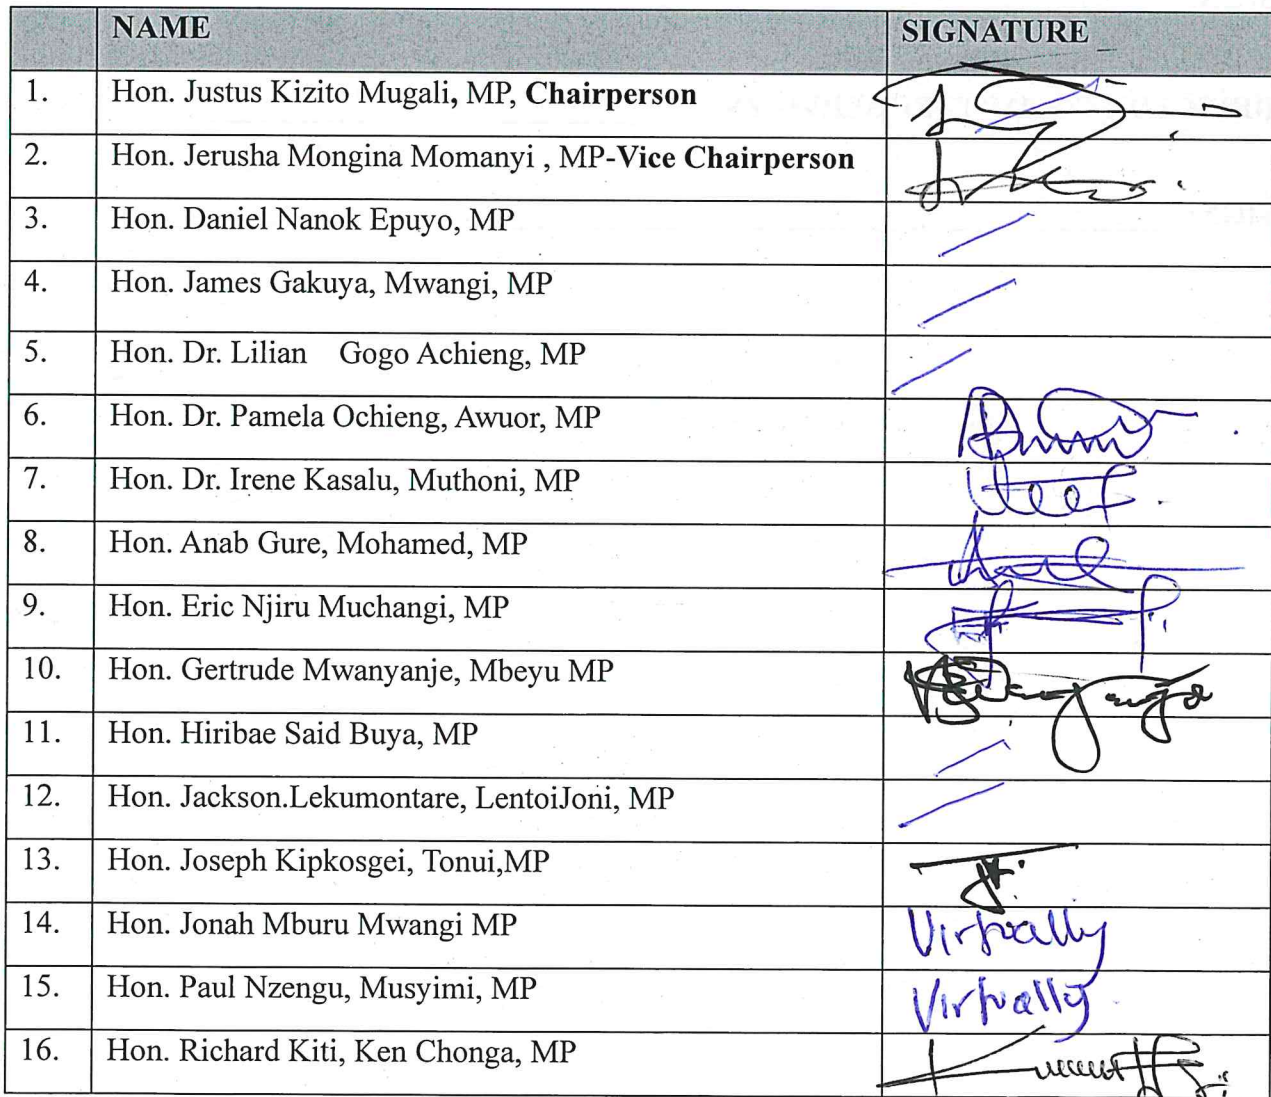 NAME SIGNATURE
1. Hon. Justus Kizito Mugali, MP, Chairperson
2. Hon. Jerusha Mongina Momanyi , MP-Vice Chairperson
3. Hon. Daniel Nanok Epuyo, MP
4. Hon. James Gakuya, Mwangi, MP
5. Hon. Dr. Lilian Gogo Achieng, MP
6. Hon. Dr. Pamela Ochieng, Awuor, MP
7. Hon. Dr. Irene Kasalu, Muthoni, MP
8. Hon. Anab Gure, Mohamed, MP
9. Hon. Eric Njiru Muchangi, MP
10. Hon. Gertrude Mwanyanje, Mbeyu MP
11. Hon. Hiribae Said Buya, MP
12. Hon. Jackson.Lekumontare, LentoiJoni, MP
13. Hon. Joseph Kipkosgei, Tonui,MP
14. Hon. Jonah Mburu Mwangi MP Virtually
15. Hon. Paul Nzengu, Musyimi, MP Virtually
16. Hon. Richard Kiti, Ken Chonga, MP